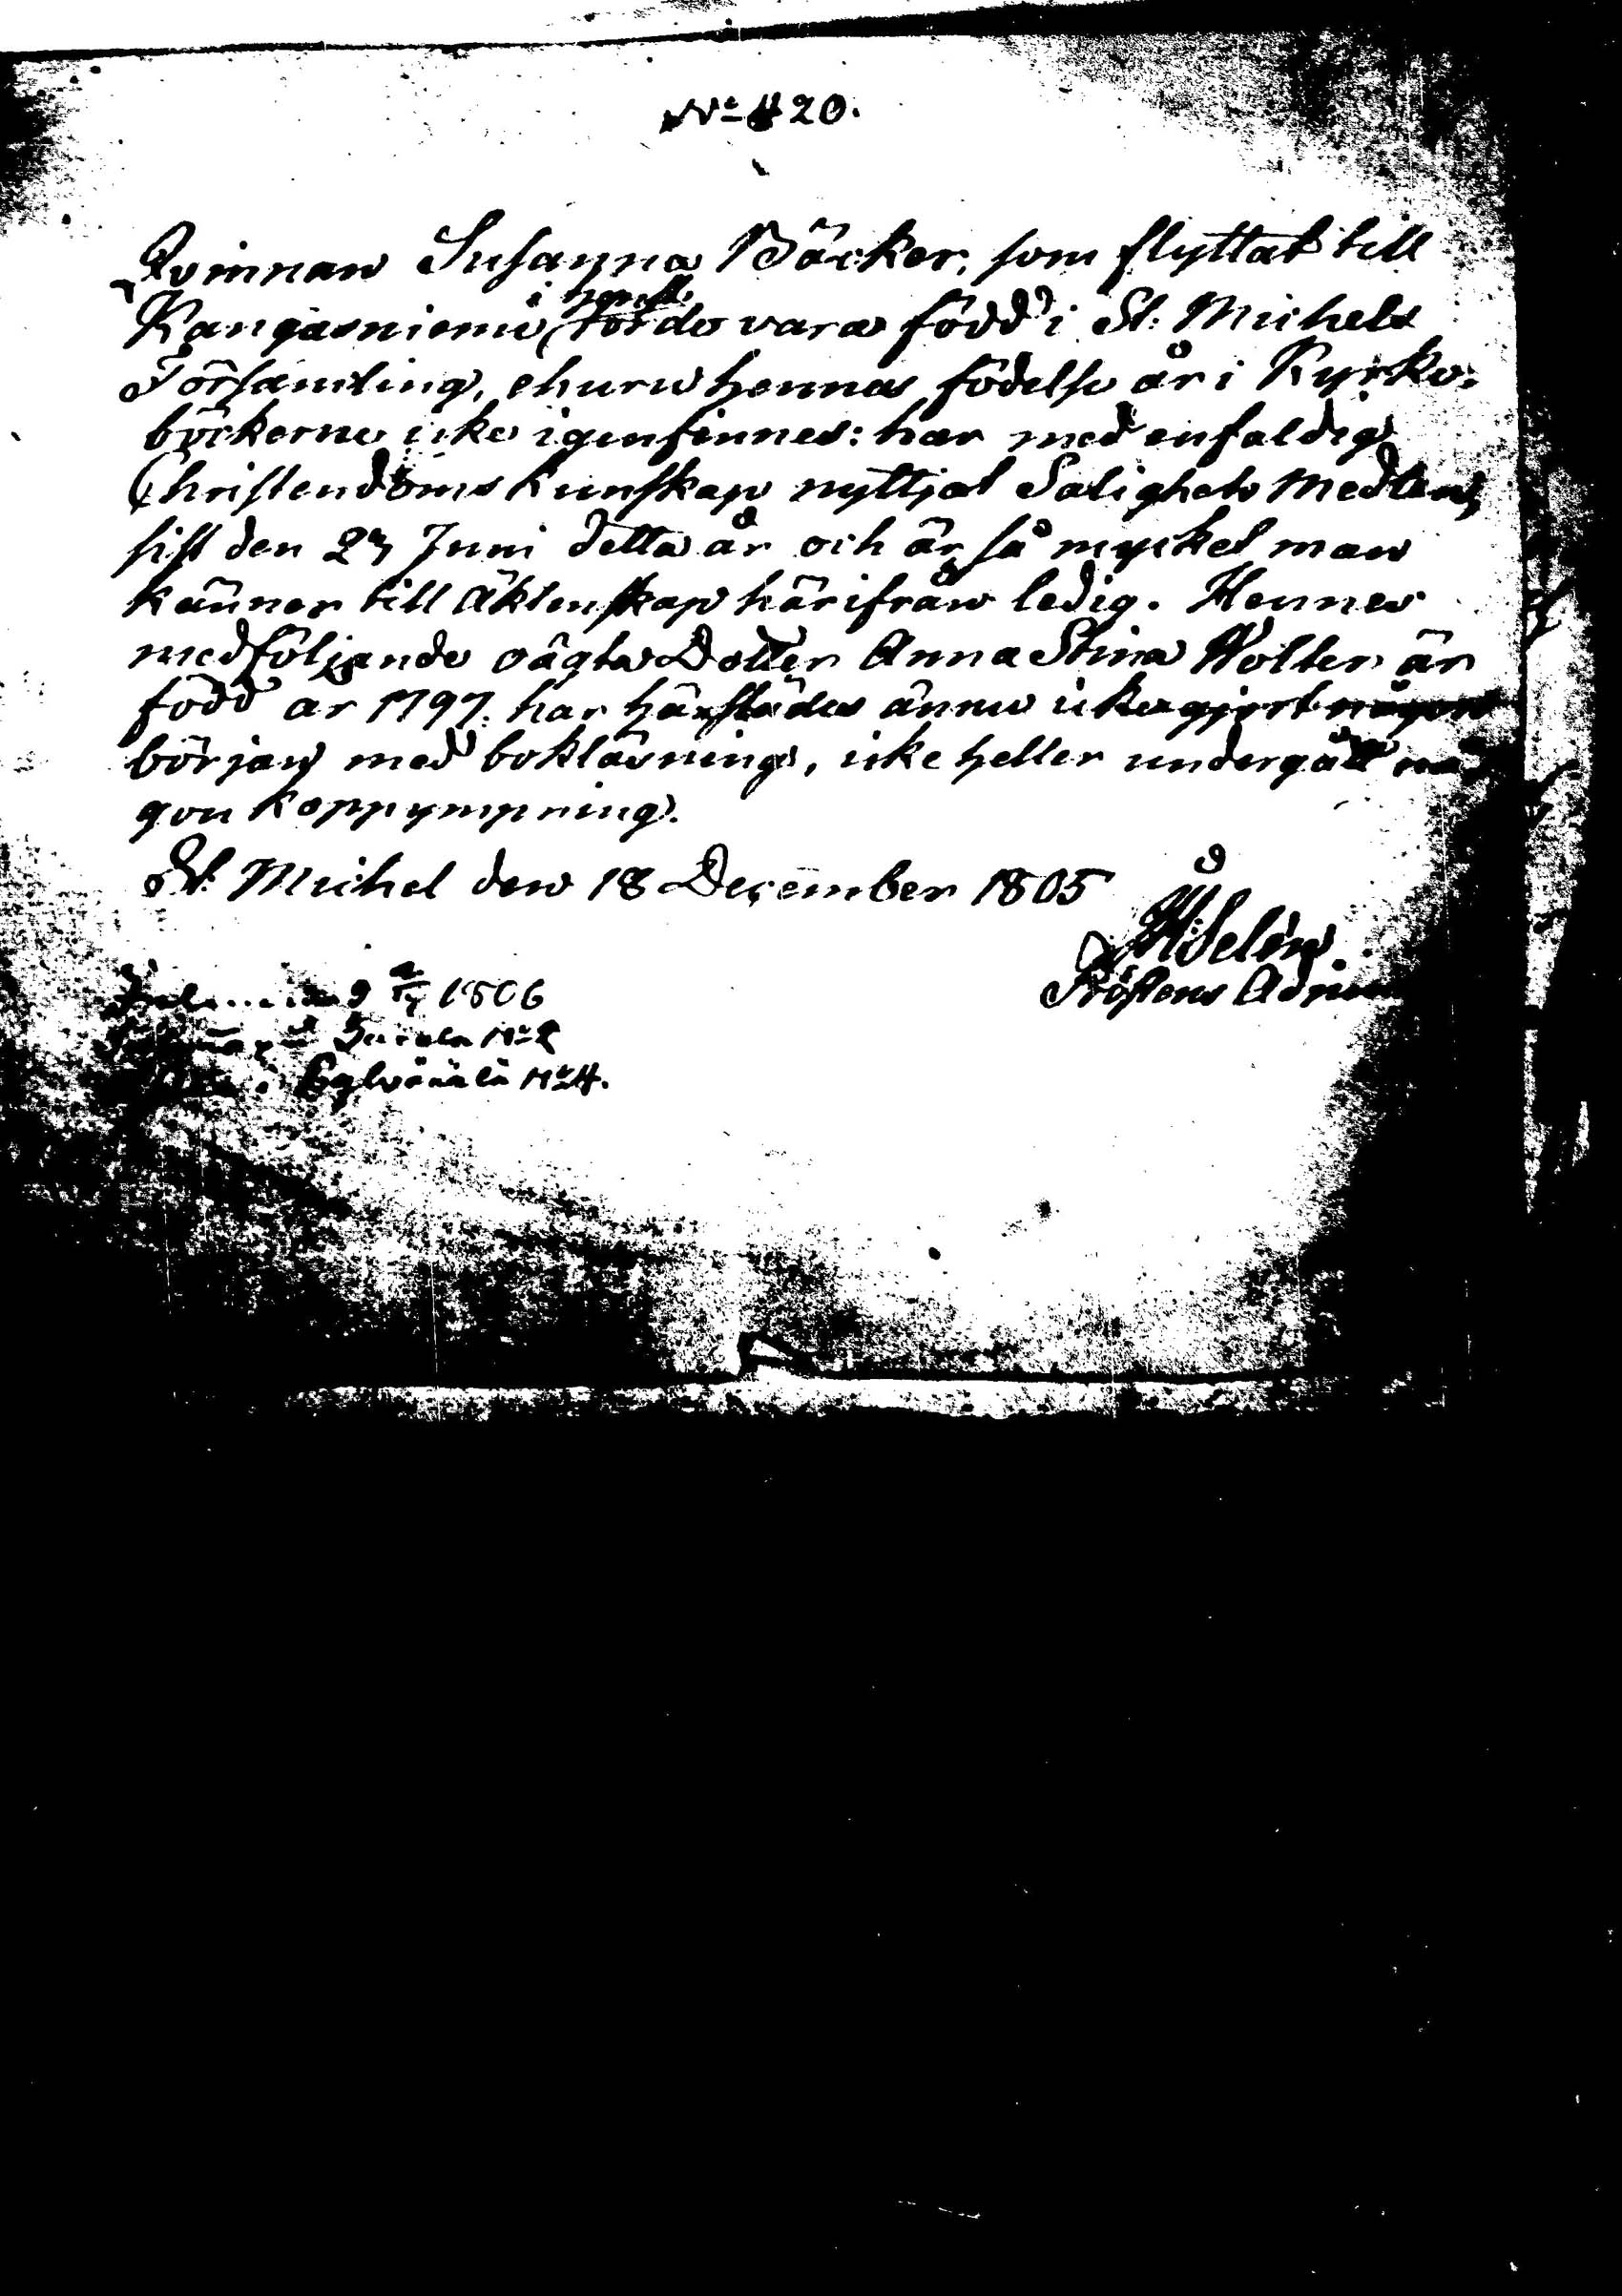 No 420.
Qvinnan Susanna Bäcker, som flyttat till
Kangasniemi i höst torde vara född i St: Michels
Församling, ehuru hennes födelse år i Kyrko-
böckerne icke igenfinnes: har med enfaldig
Christendoms Kunskap nyttjat Salighets Medlen,
sist den 23 Juni detta år och är så mycket man
känner till Äktenskap härifrån ledig. Hennes
medföljande oägta Dotter Anna Stina Wolter är
född år 1797. har härstädes ännu icke gjort någon
början med bokläsning, icke heller undergått nå-
gon koppympning.
St. Michel den 18 December 1805
Selin
Prostens Adj
1806
No 2
Sylvänälä No 4.